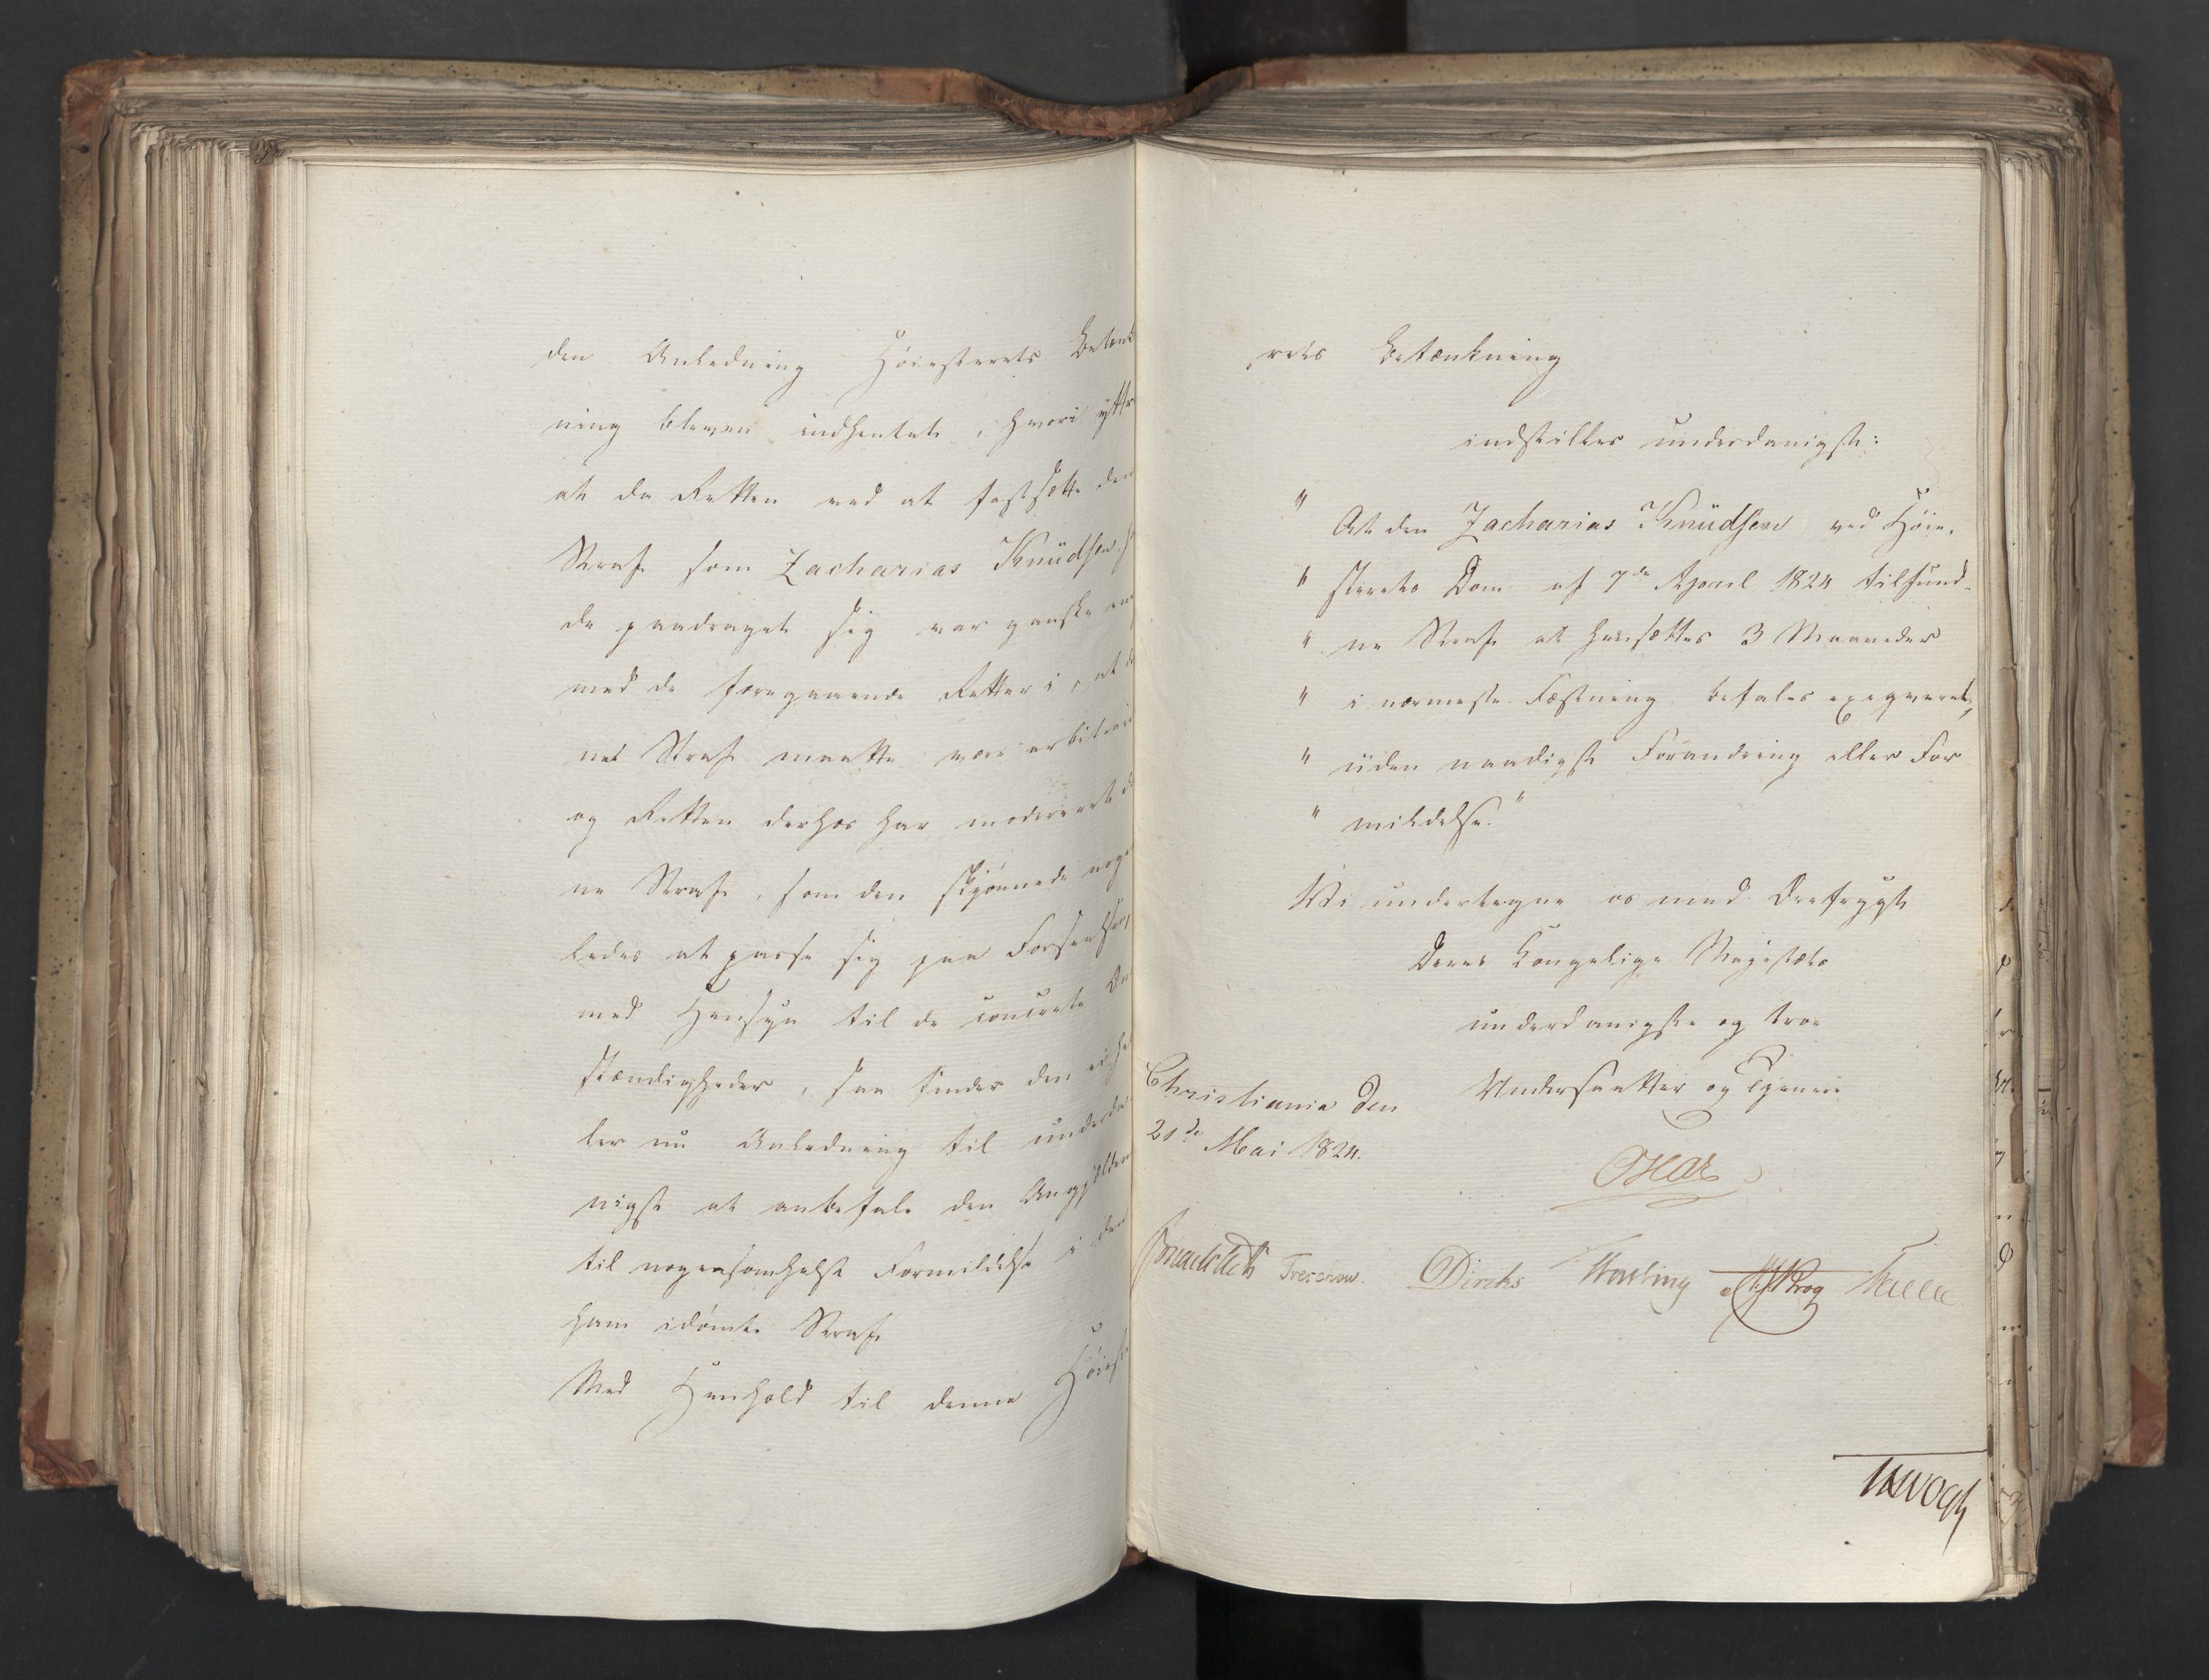 den Anledning Høiesterets Betænk
ning bleven indhentet, hvori yttr
at da Retten ved at fastsætte den
Straf som Zacharias Knudsen h
de paadraget sig var ganske en
med de foregaaende Retter i, at d
nes Straf maatte være arbitrair
og Retten derhos har modereret d
ne Straf, som den skjønnede noge
ledes at passe sig paa Forseelsen,
med Hensyn til de concrete Om
stændigheder, saa finder den ei hel
ler nu Anledning til underda
nigst at anbefale den Angjeldend
til nogensomhelst Formildelse i den
ham idømte Straf
Med Henhold til denne Høieste
rets Betænkning
indstilles underdanigst:
" At den Zacharias Knudsen ved Høie-
" sterets Dom af 7de April 1824 tilfund-
" ne Straf at hensættes 3 Maaneder
" i nærmeste Fæstning befales exeqveret,
" uden naadigst Forandring eller For
" mildelse."
Vi undertegne os med Ærefrygt
Deres Kongelige Majestæts
underdanigste og troe
Undersaatter og Tjenere
Christiania den
21de Mai 1824.
Oscar
Treschow. Diriks Motzfeldt Krog